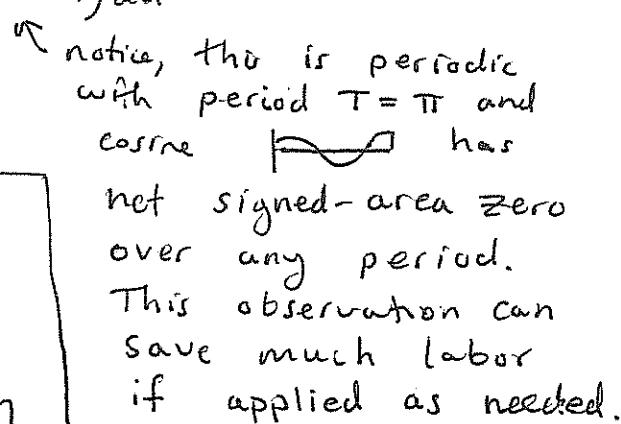 notice, this is periodic
with period T = π and
cosine has
net signed-area zero
over any period.
This observation can
save much labor
if applied as needed.